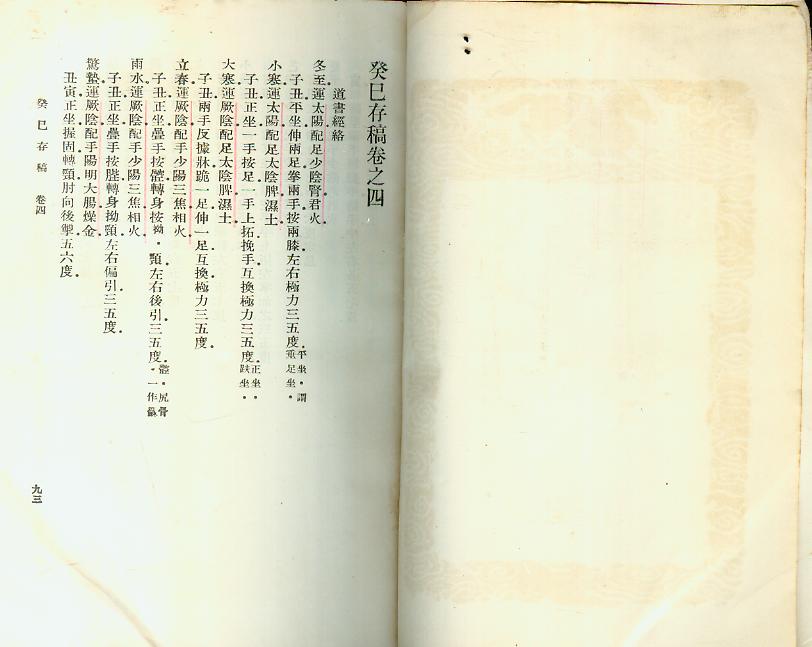 癸巳存稿卷之四
道書經絡
冬至運太陽配足少陰腎君火。
子丑平坐伸兩足拳兩手按兩膝左右極力三五度。平坐。謂垂足坐。
小寒運太陽配足太陰脾濕土。
子丑正坐一手按足一手上拓挽手互換極力三五度。正坐。趺坐。
大寒運厥陰配足太陰脾濕土。
子丑兩手反據牀跪一足伸一足互換極力三五度。
立春運厥陰配手少陽三焦相火。
子丑正坐疊手按髀轉身按拗。頸左右後引三五度。髀。尻骨。一作
雨水運厥陰配手少陽三焦相火。
子丑正坐疊手按䏶轉身拗頸左右偏引三五度。
驚蟄運厥陰配手陽明大腸燥金。
丑寅正坐握固轉頸肘向後掣五六度。
癸巳存稿 卷四
九三